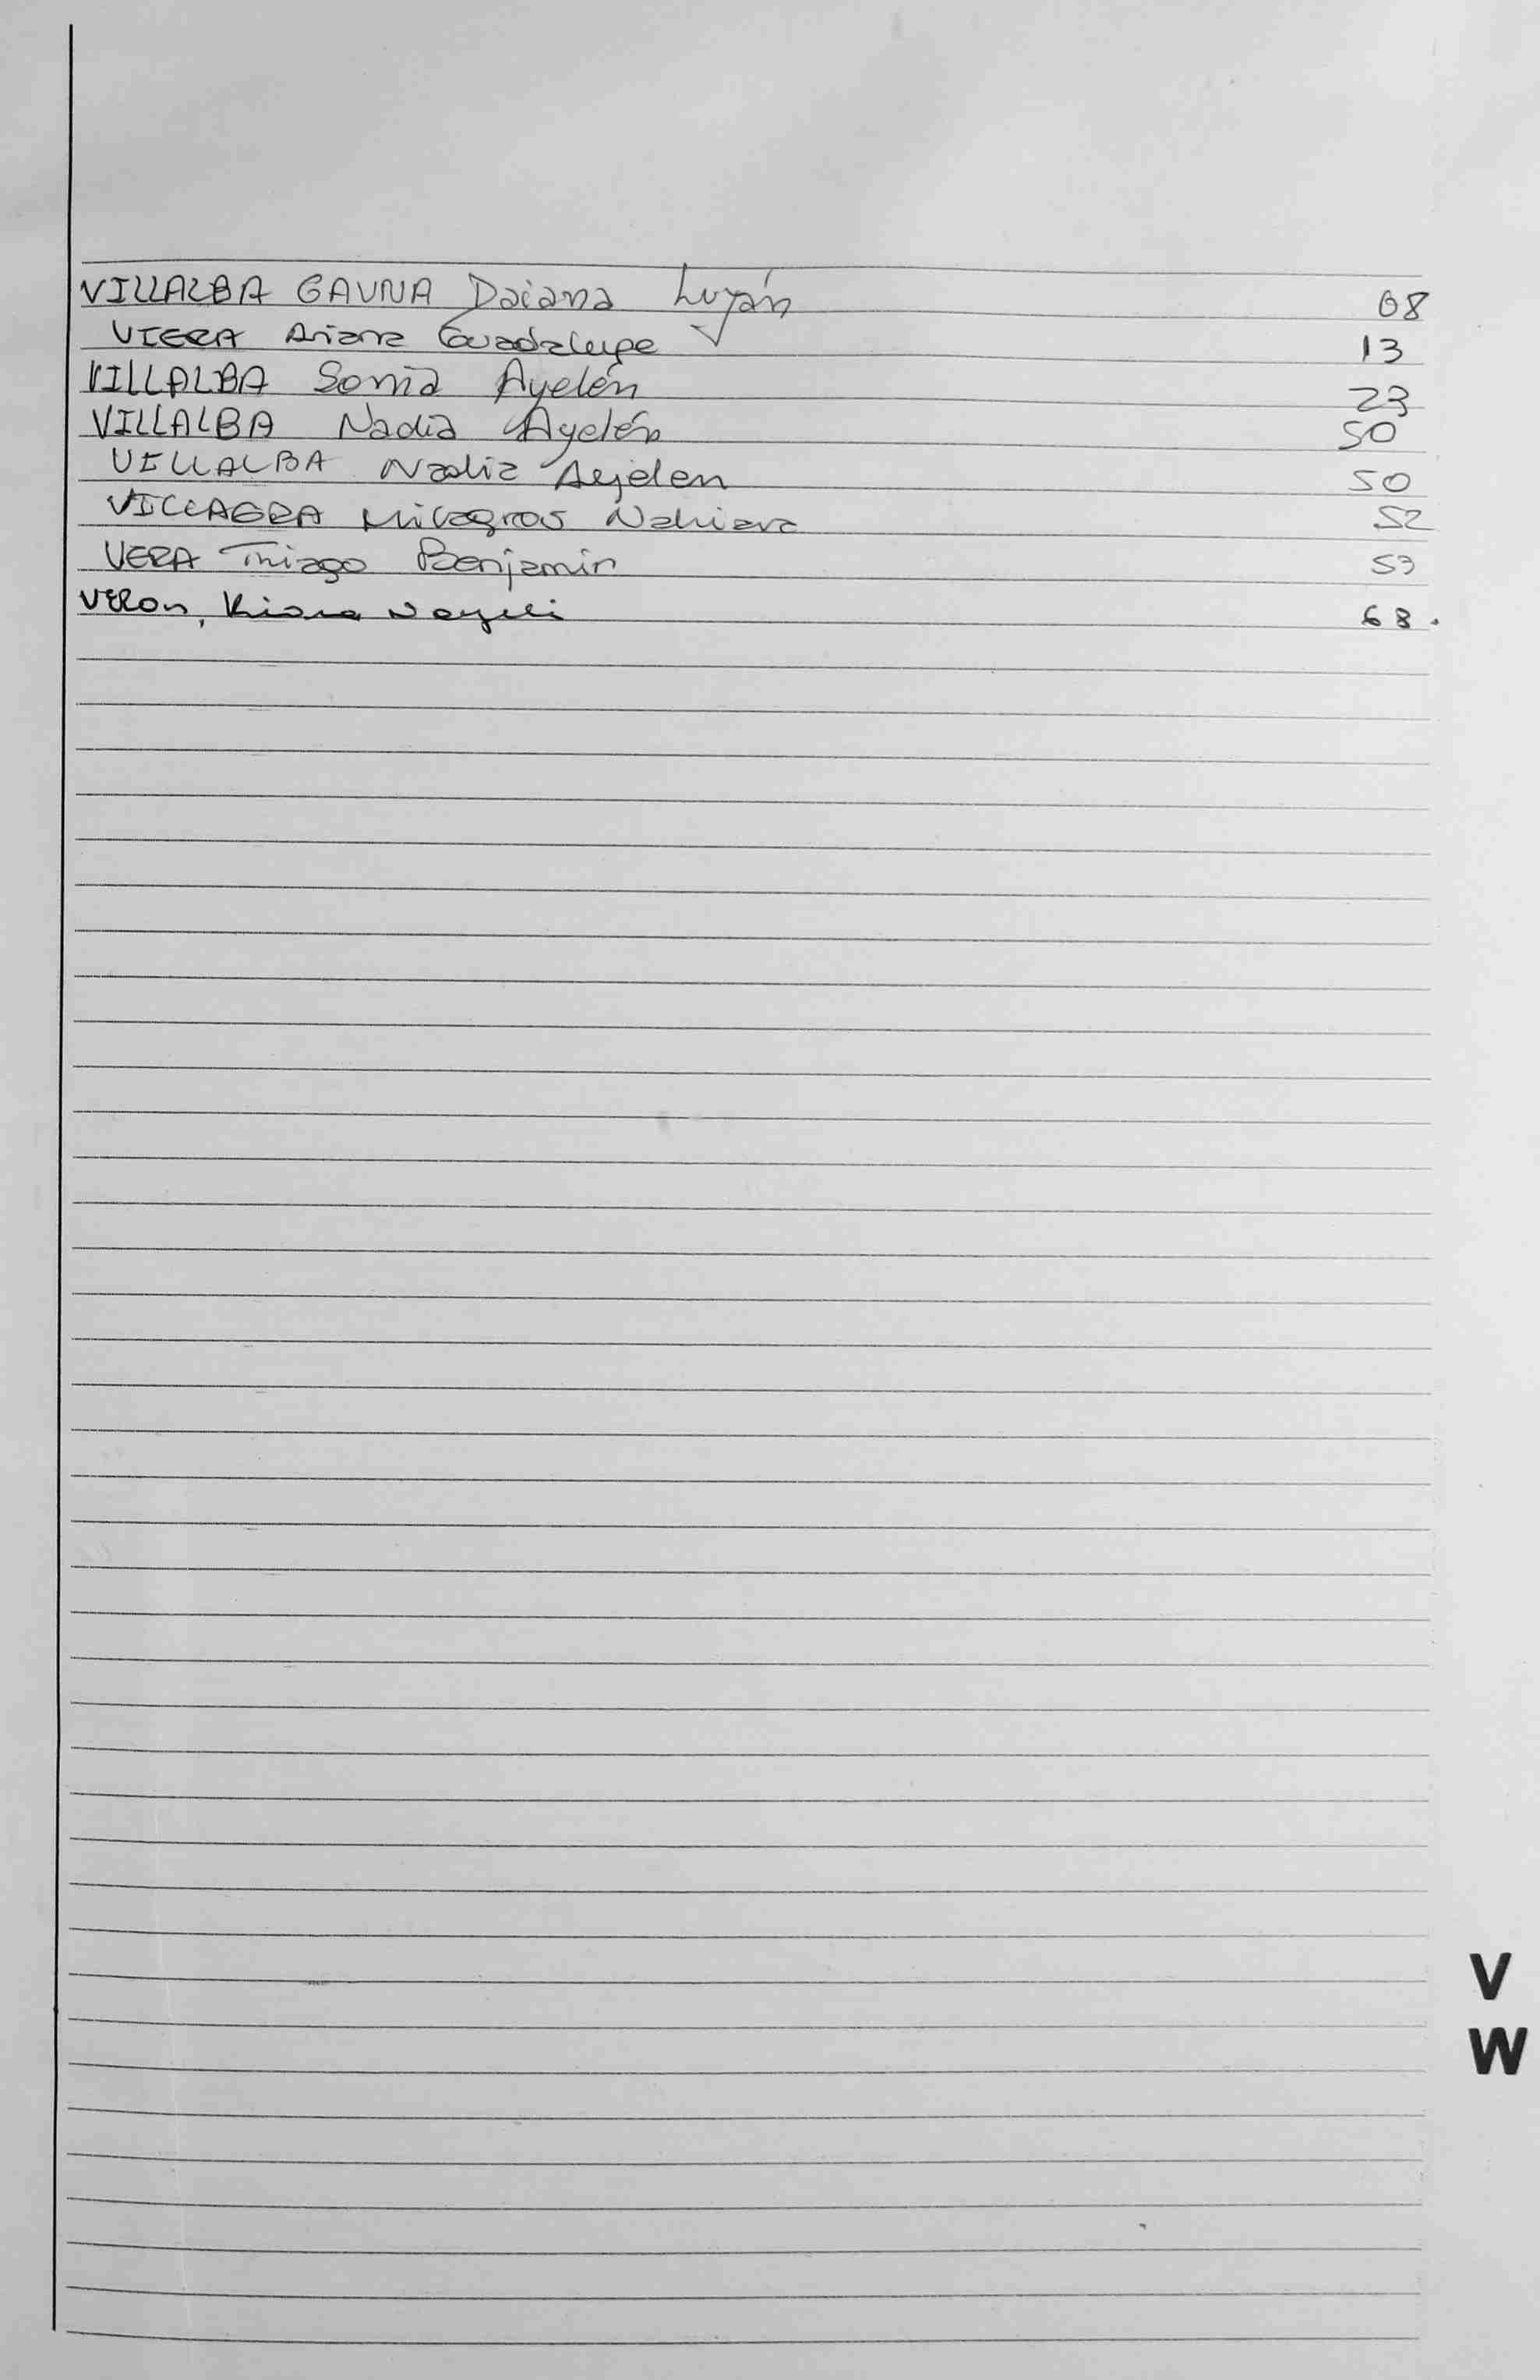 VILLALBA GAUNA Daiana Luján 08
VIERA Ariana Guadalupe 13
VILLALBA Sonia Ayelén 23
VILLALBA Nadia Ayelén 50
VILLALBA Nadia Ayelen 50
VILLAGRA Milagros Nahiara 52
VERA Thiago Benjamin 53
VERON, Kiara Nayeli 68.
V
W